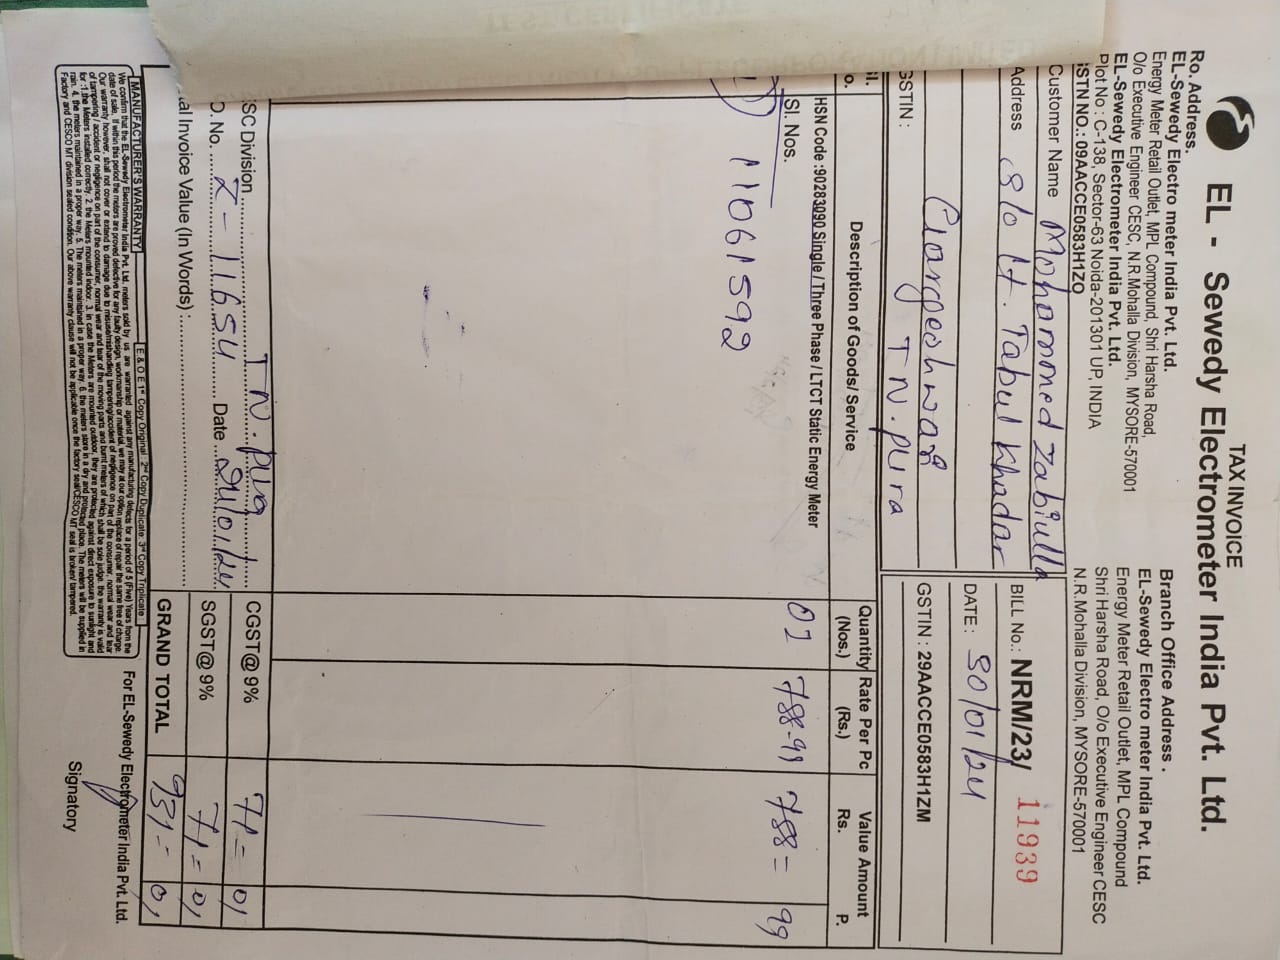 TAX INVOICE
EL - Sewedy Electrometer India Pvt. Ltd.
Ro. Address.
EL-Sewedy Electro meter India Pvt. Ltd.
Energy Meter Retail Outlet, MPL Compound, Shri Harsha Road,
O/o Executive Engineer CESC, N.R.Mohalla Division, MYSORE-570001
EL-Sewedy Electrometer India Pvt. Ltd.
Plot No : C-138, Sector-63 Noida-201301 UP, INDIA
GSTN NO.: 09AACCE0583H1ZO
Branch Office Address .
EL-Sewedy Electro meter India Pvt. Ltd.
Energy Meter Retail Outlet, MPL Compound
Shri Harsha Road, O/o Executive Engineer CESC
N.R.Mohalla Division, MYSORE-570001
Customer Name Mohammed Zabiulla
Address S/o Lt. Tabul Khadar
T N. pura
GSTIN :
BILL No.: NRM/23/ 11939
DATE : 30/01/24
GSTIN : 29AACCE0583H1ZM
Description of Goods/ Service Quantity (Nos.) Rate Per Pc (Rs.) Value Amount Rs. P.
HSN Code :90283090 Single / Three Phase / LTCT Static Energy Meter
Sl. Nos. 01 788-99 788= 99
11061592
SC Division T N. pura CGST@9% 71= 01
O. No. Z- 11654 Date SGST@9% 71= 01
al Invoice Value (In Words) : GRAND TOTAL 931=
MANUFACTURER'S WARRANTY E & O E 1st Copy Original : 2nd Copy Duplicate: 3rd Copy Triplicate
We confirm that the EL-Sewedy Electrometer India Pvt. Ltd. meters sold by us are warranted against any manufacturing defects for a period of 5 (Five) Years from the
date of sale. If within this period the meters are proved defective for any faulty design, workmanship or material, we may at our option replace of repair the same free of charge.
Factory and CESCO MT division sealed condition. Our above warranty clause will not be applicable once the factory seal/CESCO MT seal is broken/ tampered.
For EL-Sewedy Electrometer India Pvt. Ltd.
Signatory